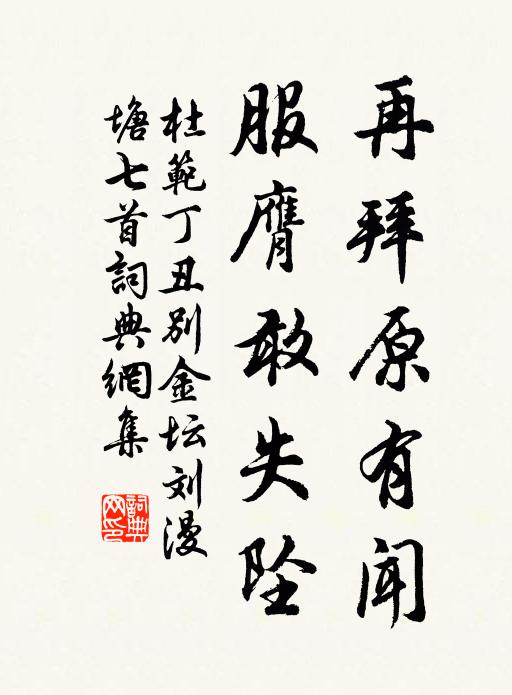 再拜原有闻
服膺敢失坠
杜範丁丑别金坛刘漫
塘七首詞典網集
詞典网印